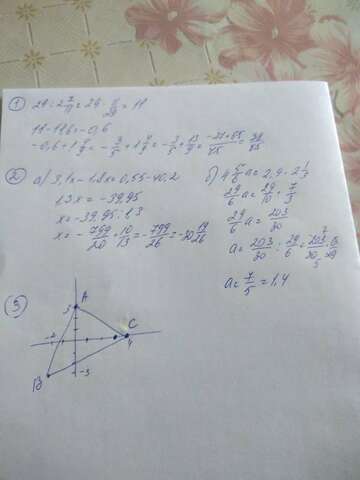 ① 29 : 2 7/11 = 29 · 11/29 = 11
11 - 11,6 = -0,6
-0,6 + 1 4/9 = -3/5 + 1 4/9 = -3/5 + 13/9 = (-27+65)/45 = 38/45
② а) 3,1x - 1,8x = 0,55 - 40,2
1,3x = -39,95
x = -39,95 : 1,3
x = -799/20 · 10/13 = -799/26 = -30 19/26
б) 4 5/6 a = 2,9 · 2 1/3
29/6 a = 29/10 · 7/3
29/6 a = 203/30
a = 203/30 : 29/6 = 203/30 · 6/29
7
5
a = 7/5 = 1,4
③
A
C
-2
4
B
-3